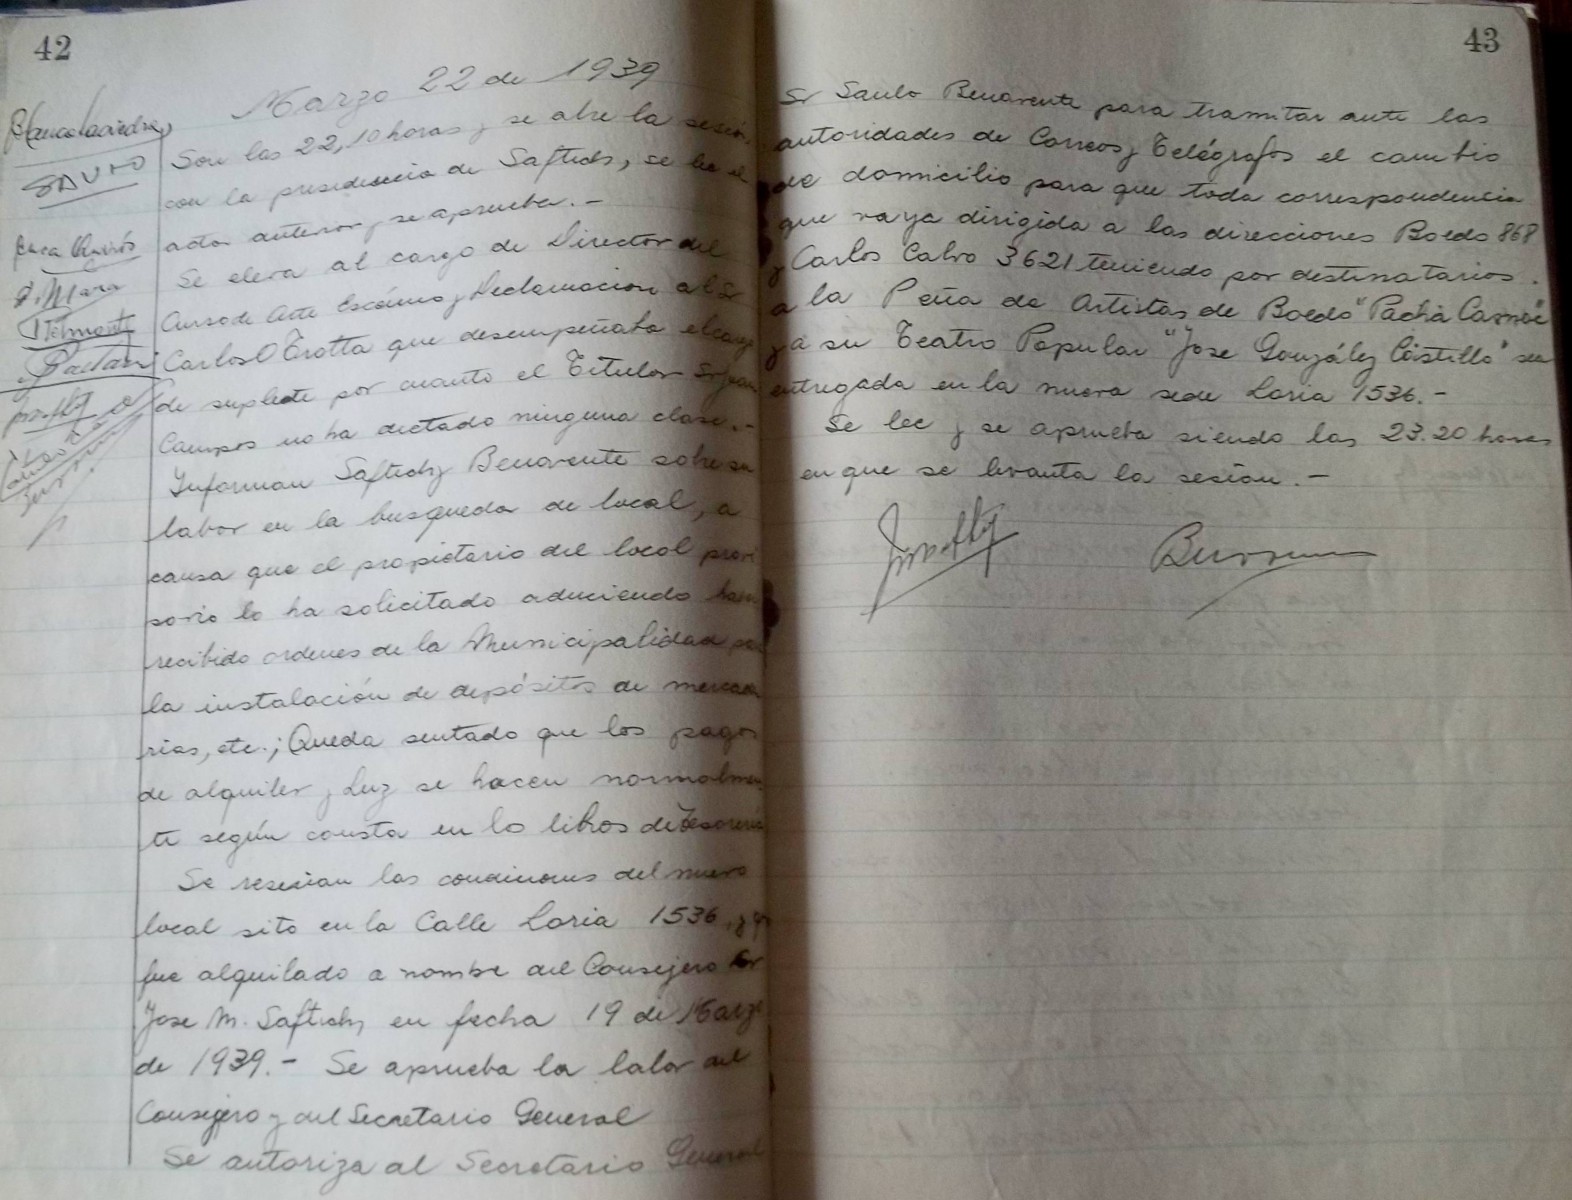 42
Marzo 22 de 1939
Son las 22,10 horas y se abre la sesión,
con la presidencia de Saftich, se lee el
acta anterior y se aprueba.-
Se eleva al cargo de Director del
Curso de Arte Escénico y Declamación al Sr
Carlos O Trotta que desempeñaba el cargo
de suplente por cuanto el Titular Sr Juan
Campos no ha dictado ninguna clase.-
Informan Saftich y Benavente sobre su
labor en la busqueda de local, a
causa que el propietario del local provi
sorio lo ha solicitado aduciendo haber
recibido ordenes de la Municipalidad para
la instalación de depósitos de mercade
rias, etc.; Queda sentado que los pagos
de alquiler y Luz se hacen normalmen
te según consta en lo libros de Tesoreria
Se reseñan las condiciones del nuevo
local sito en la Calle Loria 1536, y que
fue alquilado a nombre del Consejero Sr
Jose M. Saftich, en fecha 19 de Marzo
de 1939.- Se aprueba la labor del
Consejero y del Secretario General
Se autoriza al Secretario General
SAULO
J. Mara
43
Sr Saulo Benavente para tramitar ante las
autoridades de Correos y Telégrafos el cambio
de domicilio para que toda correspondencia
que vaya dirigida a las direcciones Boedo 868
y Carlos Calvo 3621 teniendo por destinatarios
a la Peña de Artistas de Boedo "Pachá Camac"
y a su Teatro Popular "Jose González Castillo" sea
entregada en la nueva sede Loria 1536.-
Se lee y se aprueba siendo las 23.20 horas
en que se levanta la sesión.-